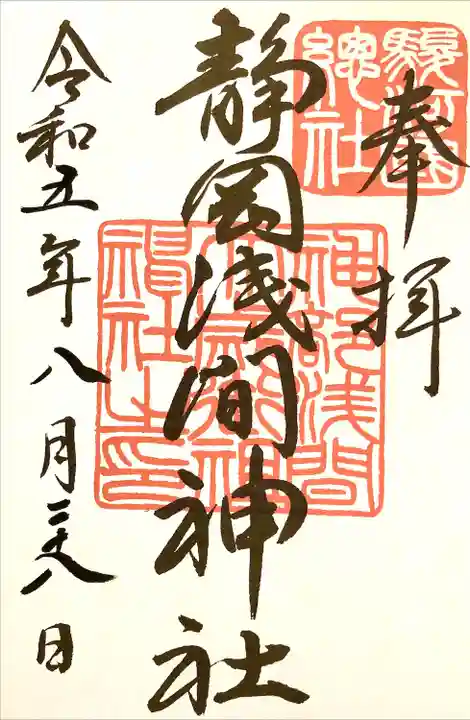 奉拝
駿河國
總社
静岡浅間神社
神部浅間
令和五年八月二十八日